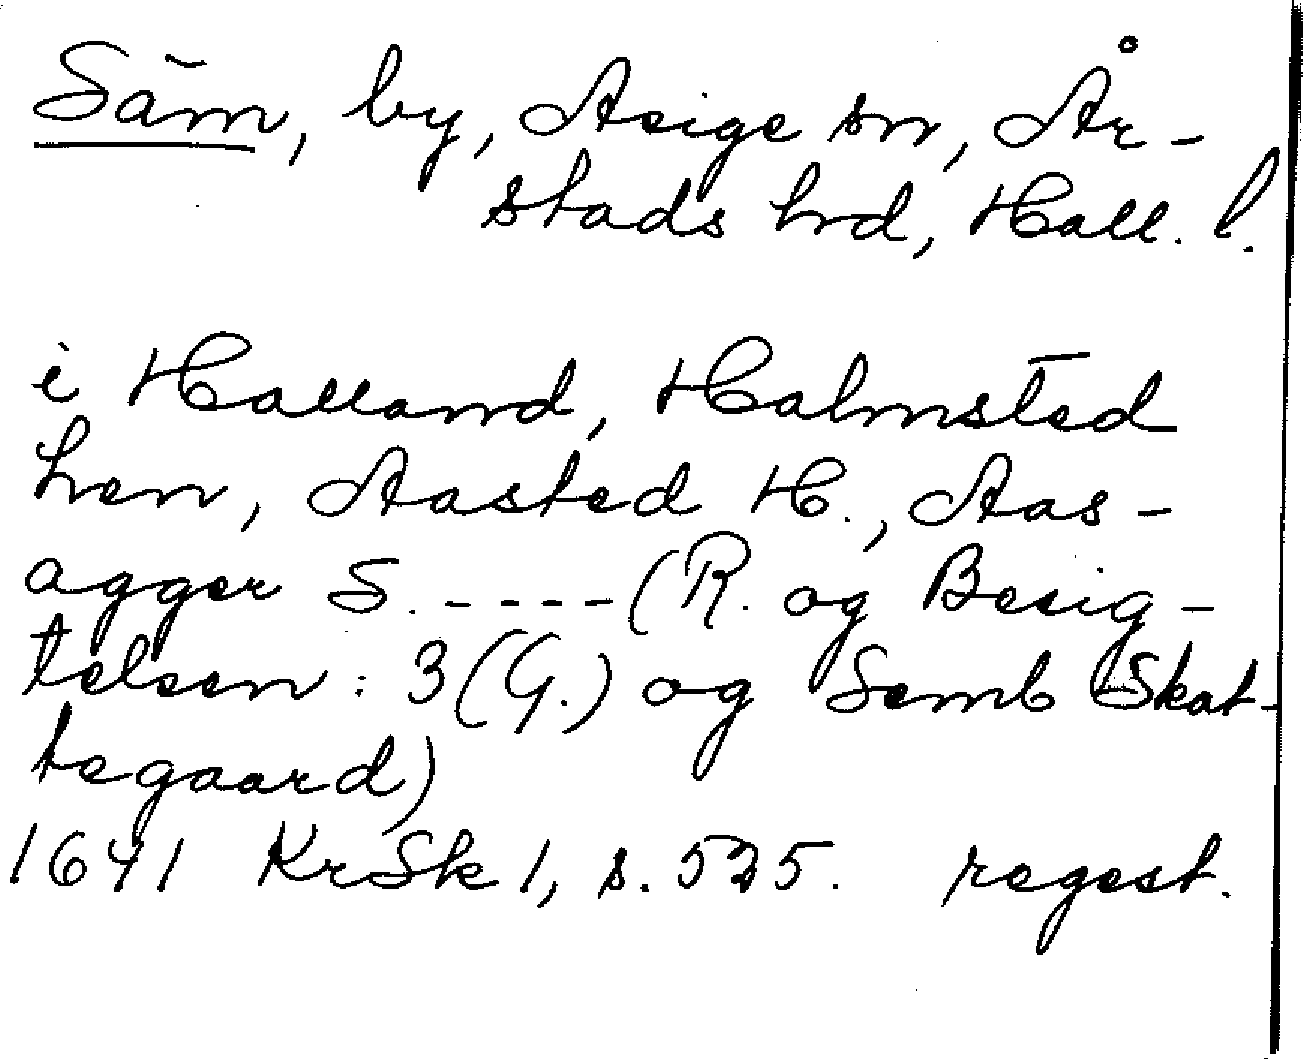 Säm, by, Asige sn, År-
stads hrd, Hall. l.
i Halland, Halmsted
hen, Aasted H., Aas-
agger S. ---- (R. og Besig-
telsen: 3 (G.) og Semb Skat-
tegaard)
1641 KrSk 1, s. 525. regest.